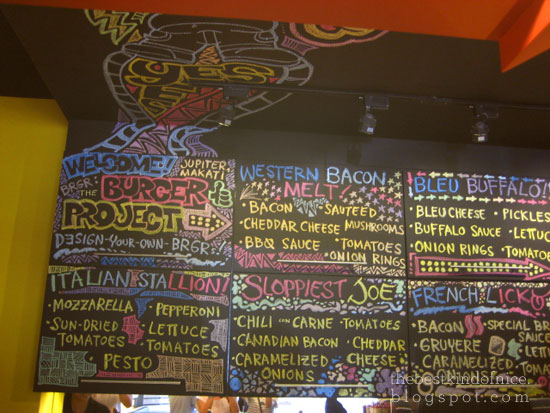 WELCOME!!
JUPITER
MAKATI
BRGR: THE
BURGER
PROJECT
DESIGN-YOUR-OWN-BRGR!
WESTERN BACON
MELT!
• BACON • SAUTEED
• CHEDDAR CHEESE MUSHROOMS
• BBQ SAUCE • TOMATOES
• ONION RINGS
BLEU BUFFALO!!
• BLEU CHEESE • PICKLES
• BUFFALO SAUCE • LETTUC
• ONION RINGS • TOMATOE
ITALIAN STALLION!
• MOZZARELLA • PEPPERONI
• SUN-DRIED • LETTUCE
TOMATOES • TOMATOES
• PESTO
SLOPPIEST JOE
• CHILI CON CARNE • TOMATOES
• CANADIAN BACON • CHEDDAR
• CARAMELIZED CHEESE
ONIONS
FRENCH LICK
• BACON • SPECIAL BR
• GRUYERE SAUCE
• CARAMELIZED • LET
ONIONS • TOM
thebestkindofnice.
blogspot.com